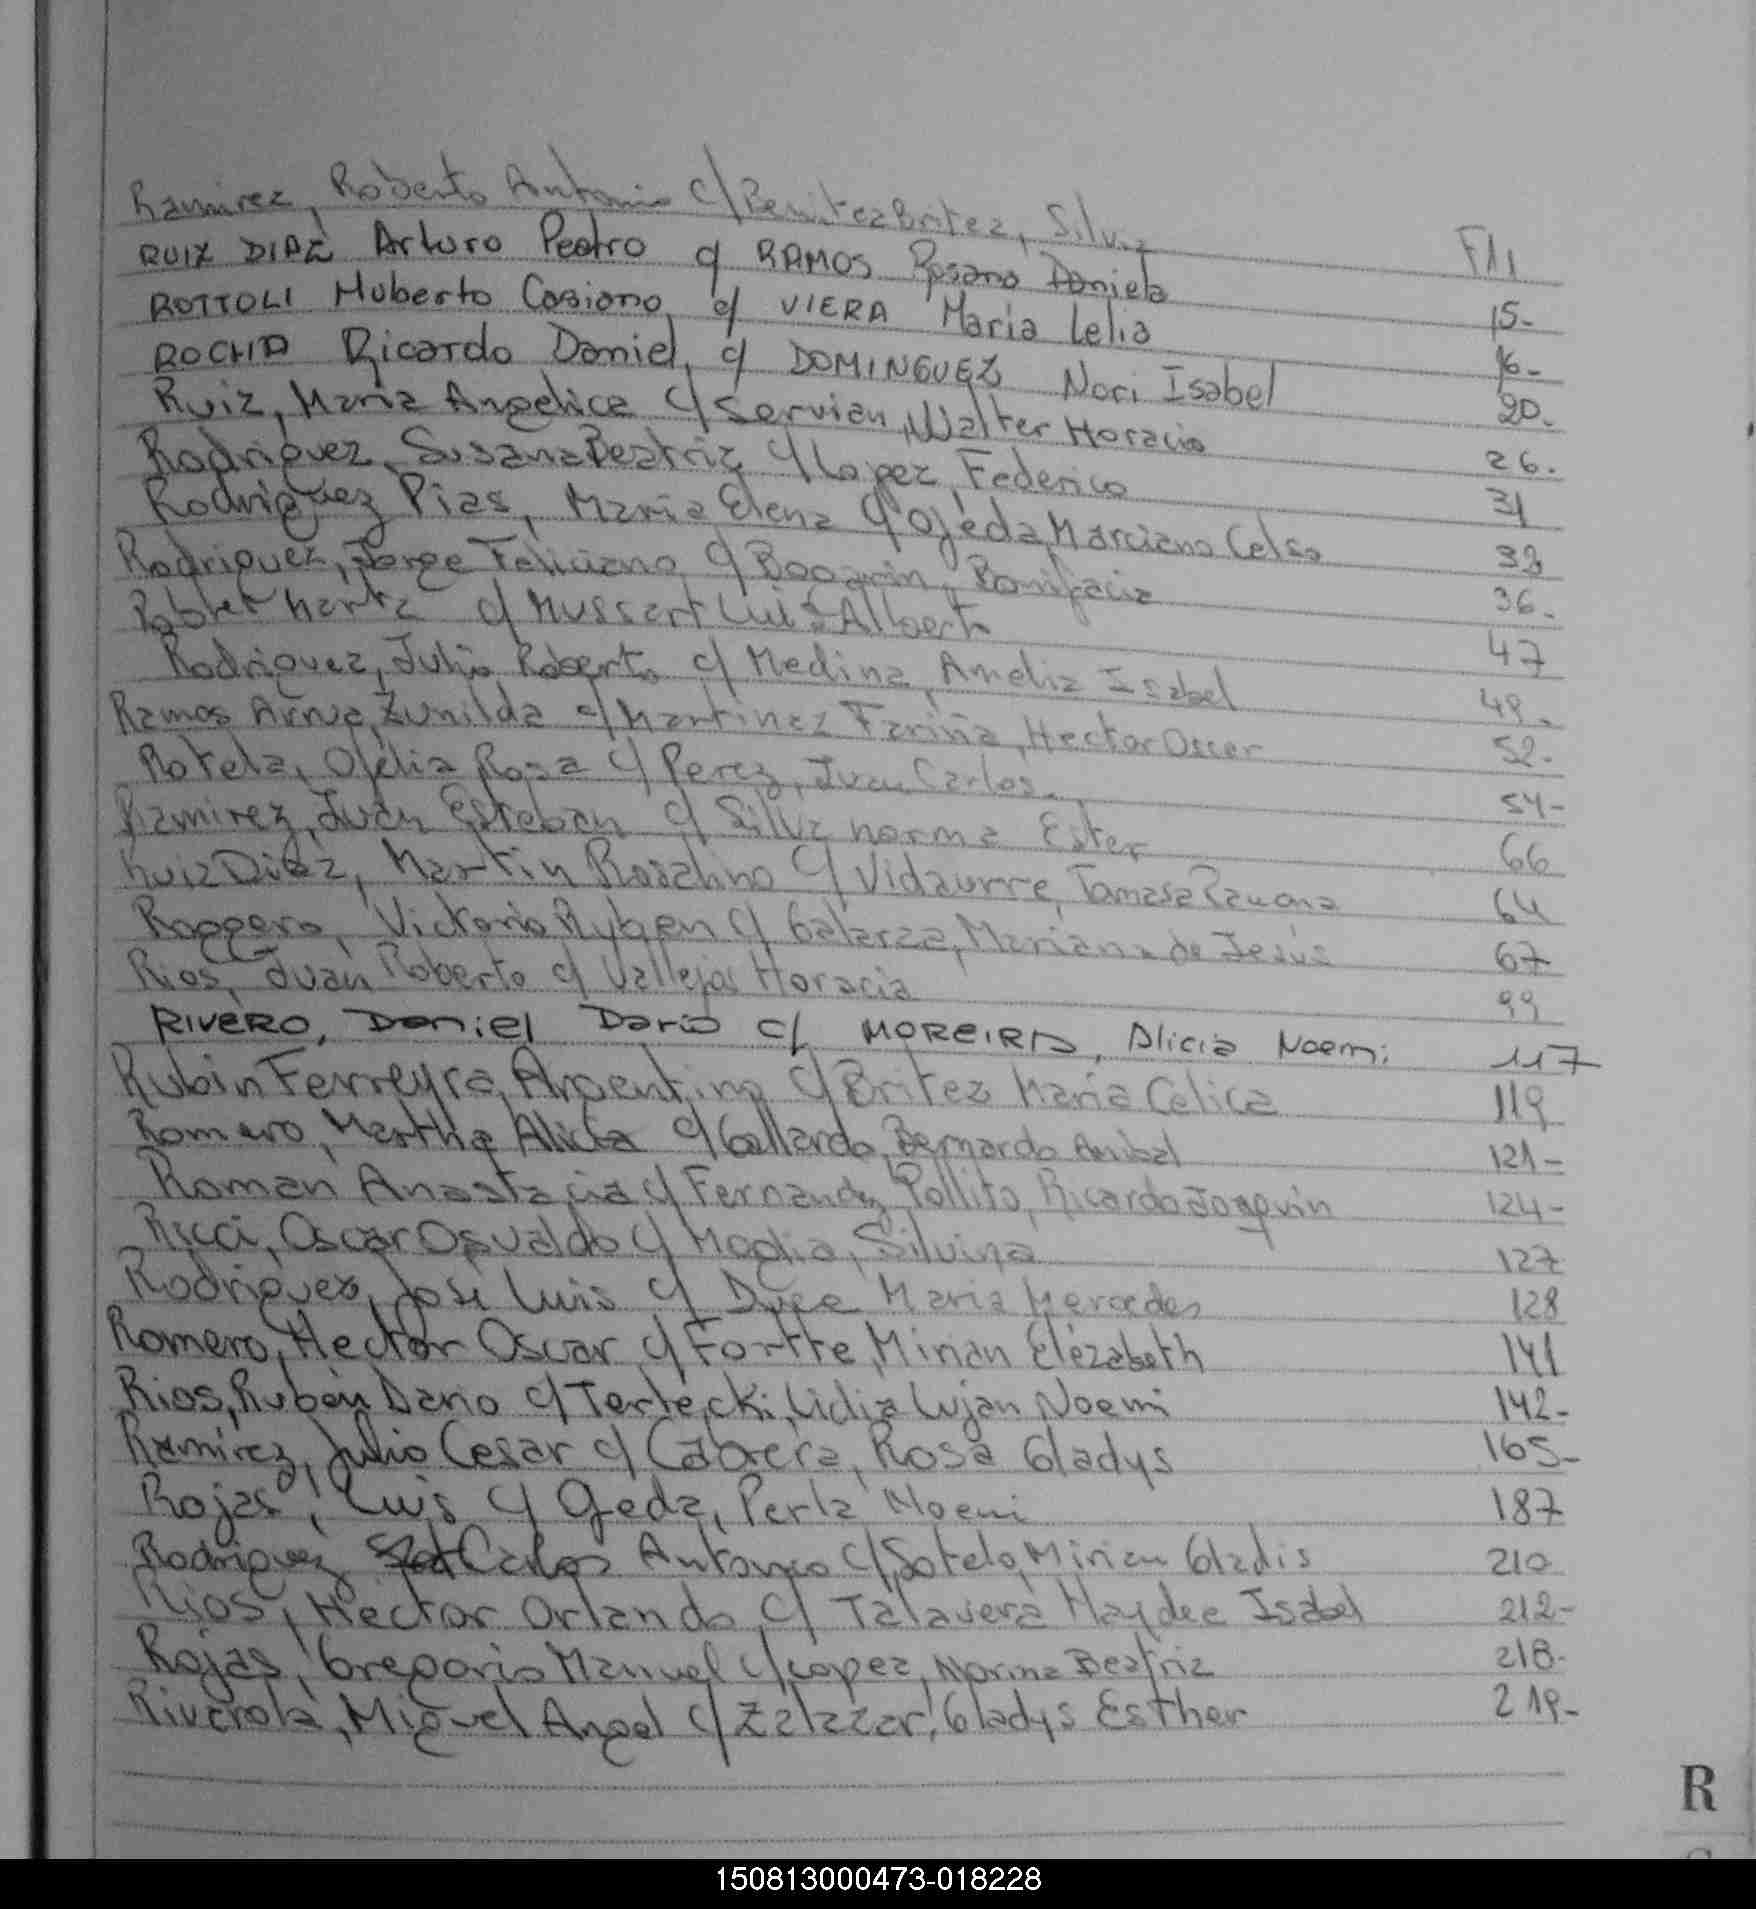 Ramirez, Roberto Antonio c/ Benitez Britez, Silvia F11
RUIZ DIAZ Arturo Pedro c/ RAMOS Rosana Daniela 15-
ROTTOLI Huberto Casiano c/ VIERA Maria Lelia 16-
ROCHA Ricardo Daniel, c/ DOMINGUEZ Nori Isabel 20-
Ruiz, Maria Angelica c/ Servian, Walter Horacio 26.
Rodriguez, Susana Beatriz c/ Lopez, Federico 31
Rodriguez Pias, Maria Elena c/ Ojeda, Marciano Celso
Rodriguez, Jorge Feliciano c/ Bogarin, Bonifacia 36-
Poblet Marta c/ Mussart Luis Alberto 47
Rodriguez, Julio Roberto c/ Medina, Amelia Isabel 49-
Ramos Zunilda c/ Martinez Fariña, Hector Oscar 52-
Rotela, Ofelia Rosa c/ Perez, Juan Carlos. 54-
Ramirez, Juan Esteban c/ Silva norma Ester 66
Ruiz Diaz, Martin c/ Vidaurre, Tomasa Ramona 64
Roggero, Victorio Ruben c/ Galarza, Mariana de Jesús 67
Rios, Juan Roberto c/ Vallejos Horacia 99
RIVERO, Daniel Dario c/ MOREIRA, Alicia Noemi 117
Rubin Ferreyra, Argentino c/ Britez Maria Celica 119
Romero, Martha Alicia c/ Gallardo, Bernardo Anibal 121-
Roman Anastacia c/ Fernandez Pollito, Ricardo Joaquin 124-
Ricci, Oscar Osvaldo c/ Silvina 127
Rodriguez, José Luis c/ Maria Mercedes 128
Romero, Hector Oscar c/ Fortte, Mirian Elezabeth 141
Rios, Ruben Dario c/ Lidia Lujan Noemi 142-
Ramirez, Julio Cesar c/ Cabrera, Rosa Gladys 165-
Rojas, Luis c/ Perla Noemi 187
Rodriguez Carlos Antonio c/ Sotelo, Mirian Gladis 210
Rios, Hector Orlando c/ Talavera Haydee Isabel 212-
Rojas, Gregorio Manuel c/ Lopez, Norma Beatriz 218-
Riverola, Miguel Angel c/ Zalazar, Gladys Esther 219-
R
150813000473-018228